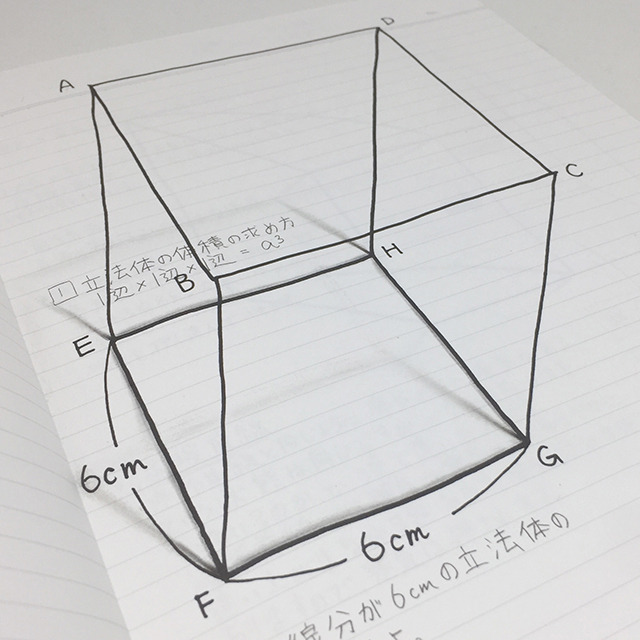 D
A
C
1 立法体の体積の求め方
1辺×1辺×1辺=a3
B
H
E
6cm
G
6cm
F
線分が6cmの立法体の